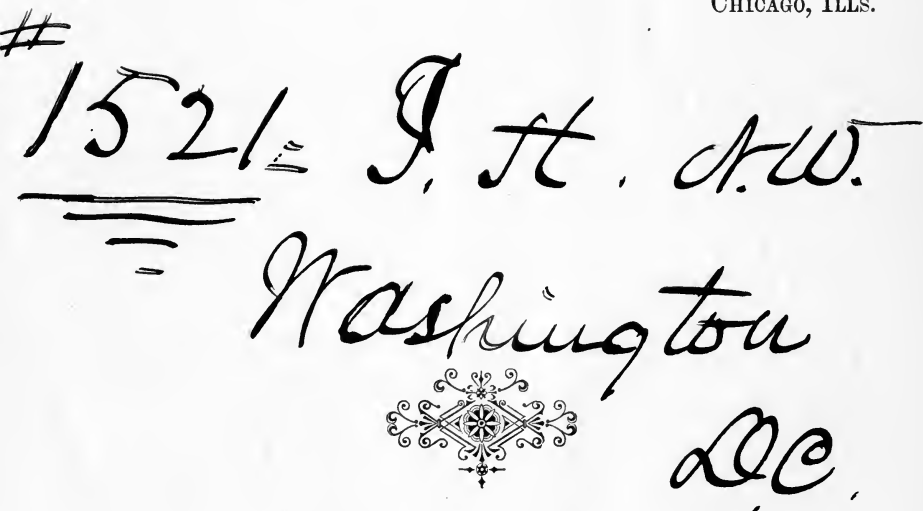 CHICAGO, ILLS.
#1521= I. St. N.W.
Washington
DC.